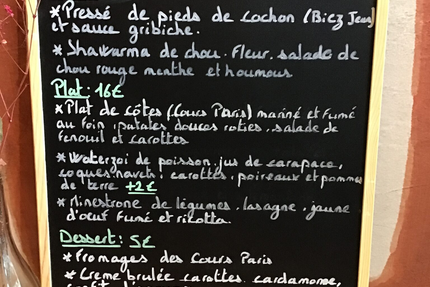 *Pressé de pieds de cochon (Biez Jean)
et sauce gribiche.
*Shawarma de chou-fleur, salade de
chou rouge menthe et houmous
Plat: 16€
*Plat de côtes (Cours Paris) mariné et fumé
au foin, patates douces roties, salade de
fenouil et carottes
*Waterzoi de poisson, jus de carapace,
coques, navets, carottes, poireaux et pommes
de terre +2€
*Minestrone de légumes, lasagne, jaune
d'œuf fumé et ricotta.
Dessert: 5€
*Fromages des Cours Paris
*Creme brulée carottes, cardamome,